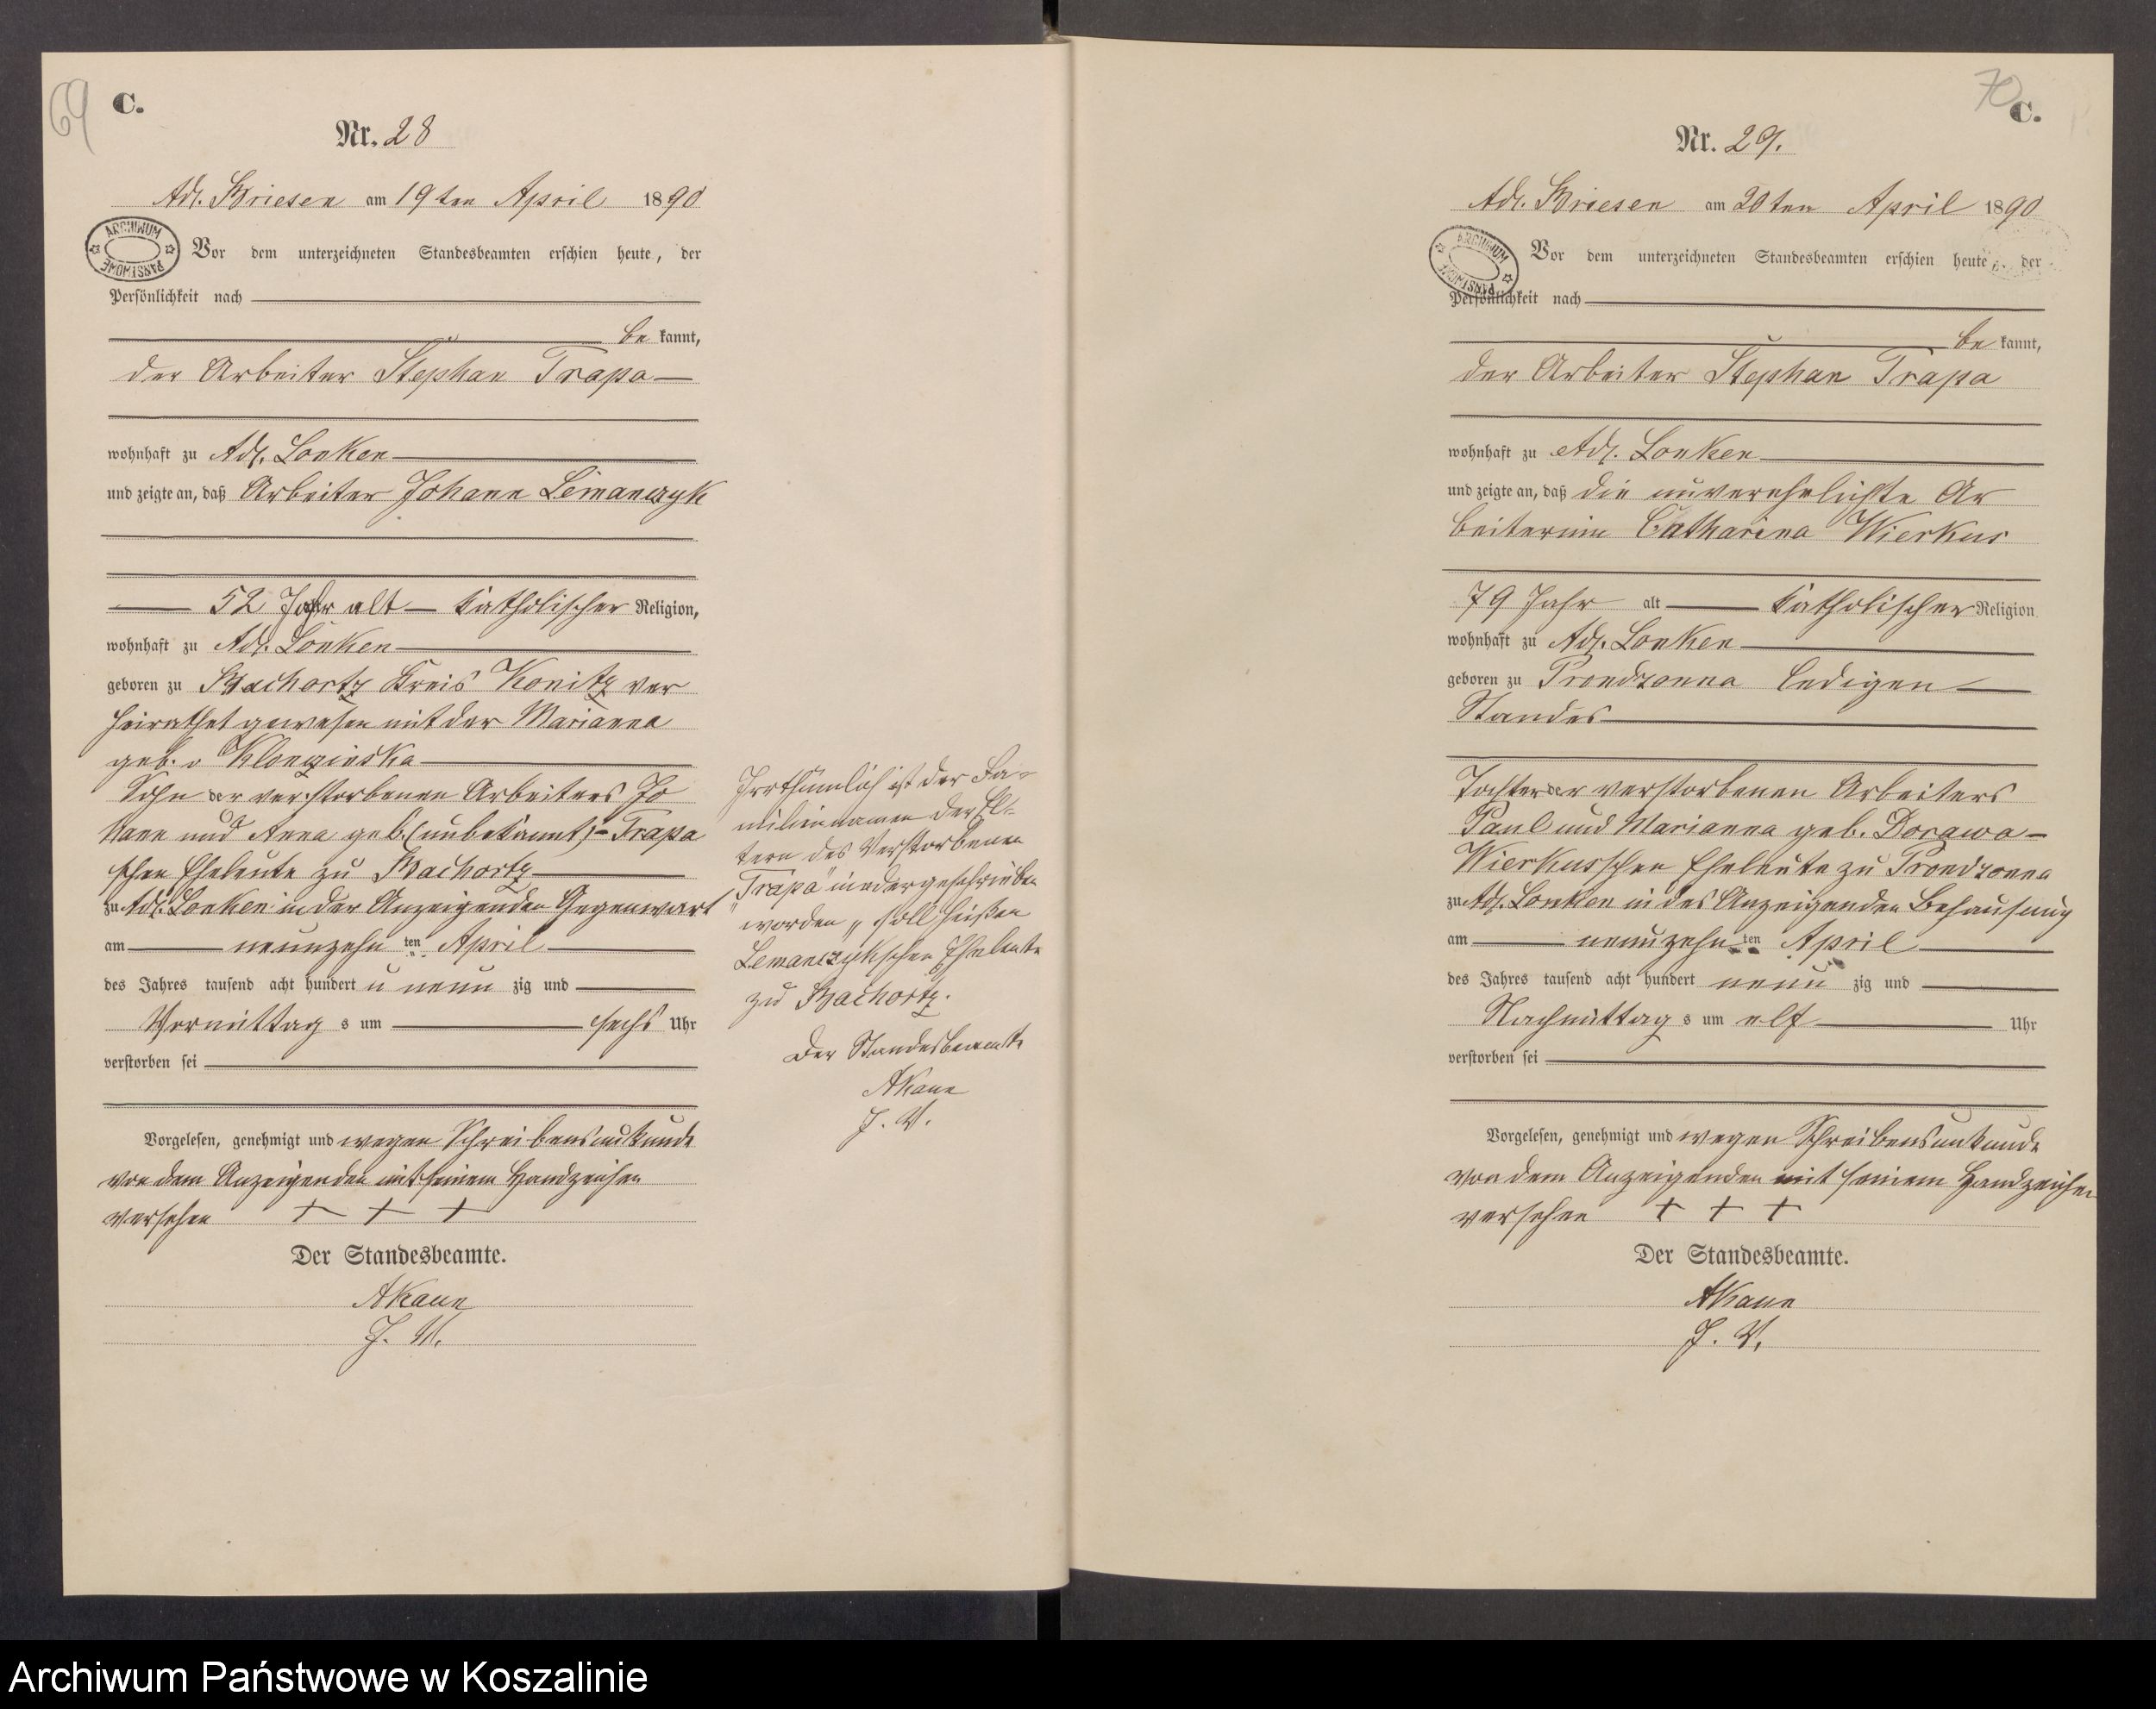 69
C.
Nr. 28
Adl. Briesen am 19ten April 1890
ARCHIWUM PAŃSTWOWE
Vor dem unterzeichneten Standesbeamten erschien heute, der
Persönlichkeit nach
be kannt,
der Arbeiter Stephan Trapa
wohnhaft zu Adl. Lonken
und zeigte an, daß Arbeiter Johann Lemanczyk
52 Jahr alt katholischer Religion,
wohnhaft zu Adl. Lonken
geboren zu Bachortz Kreis Konitz ver
heirathet gewesen mit der Marianna
geb. v
Sohn der verstorbenen Arbeiters Jo
hann und Anna geb. (unbekannt) Trapa
schen Eheleute zu Bachortz
zu Adl. Lonken in der Anzeigenden Gegenwart
am neunzehn ten April
des Jahres tausend acht hundert u neun zig und
Vormittag s um sechs Uhr
verstorben sei
Vorgelesen, genehmigt und wegen Schreibensunkunde
von dem Anzeigenden mit seinem Handzeichen
versehen + + +
Der Standesbeamte.
AKaun
J. V.
Irrthümlich ist der Fa-
miliennamen der El-
tern des Verstorbenen
„Trapa" niedergeschrieben
worden „ soll heißen
Lemanczykschen Eheleute
zu Bachortz.
Der Standesbeamte
AKaun
J. V.
70
C.
Nr. 29.
Adl. Briesen am 20ten April 1890
ARCHIWUM PAŃSTWOWE
Vor dem unterzeichneten Standesbeamten erschien heute, der
Persönlichkeit nach
be kannt,
der Arbeiter Stephan Trapa
wohnhaft zu Adl. Lonken
und zeigte an, daß die unverehelichte Ar
beiterinn Catharina Wierkus
79 Jahr alt katholischer Religion
wohnhaft zu Adl. Lonken
geboren zu Prondzonna ledigen
Standes
Tochter der verstorbenen Arbeiters
Paul und Marianna geb. Dorawa
Wierkusschen Eheleute zu Prondzonna
zu Adl. Lonken in des Anzeigenden Behausung
am neunzehn ten April
des Jahres tausend acht hundert neun zig und
Nachmittag s um elf Uhr
verstorben sei
Vorgelesen, genehmigt und wegen Schreibensunkunde
von dem Anzeigenden mit seinem Handzeichen
versehen + + +
Der Standesbeamte.
AKaun
J. V.
Archiwum Państwowe w Koszalinie